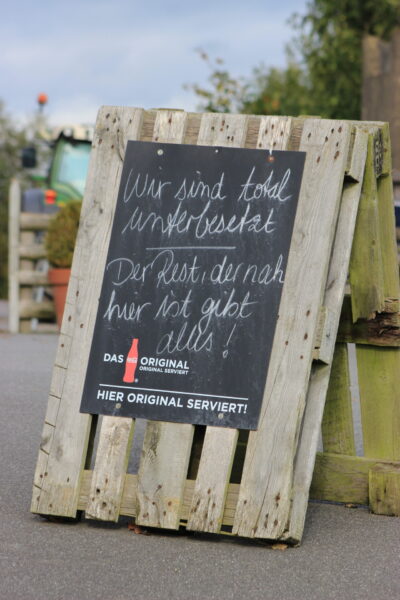 Wir sind total
unterbesetzt
Der Rest, der nah
hier ist gibt
alles!
DAS ORIGINAL
ORIGINAL SERVIERT
HIER ORIGINAL SERVIERT!